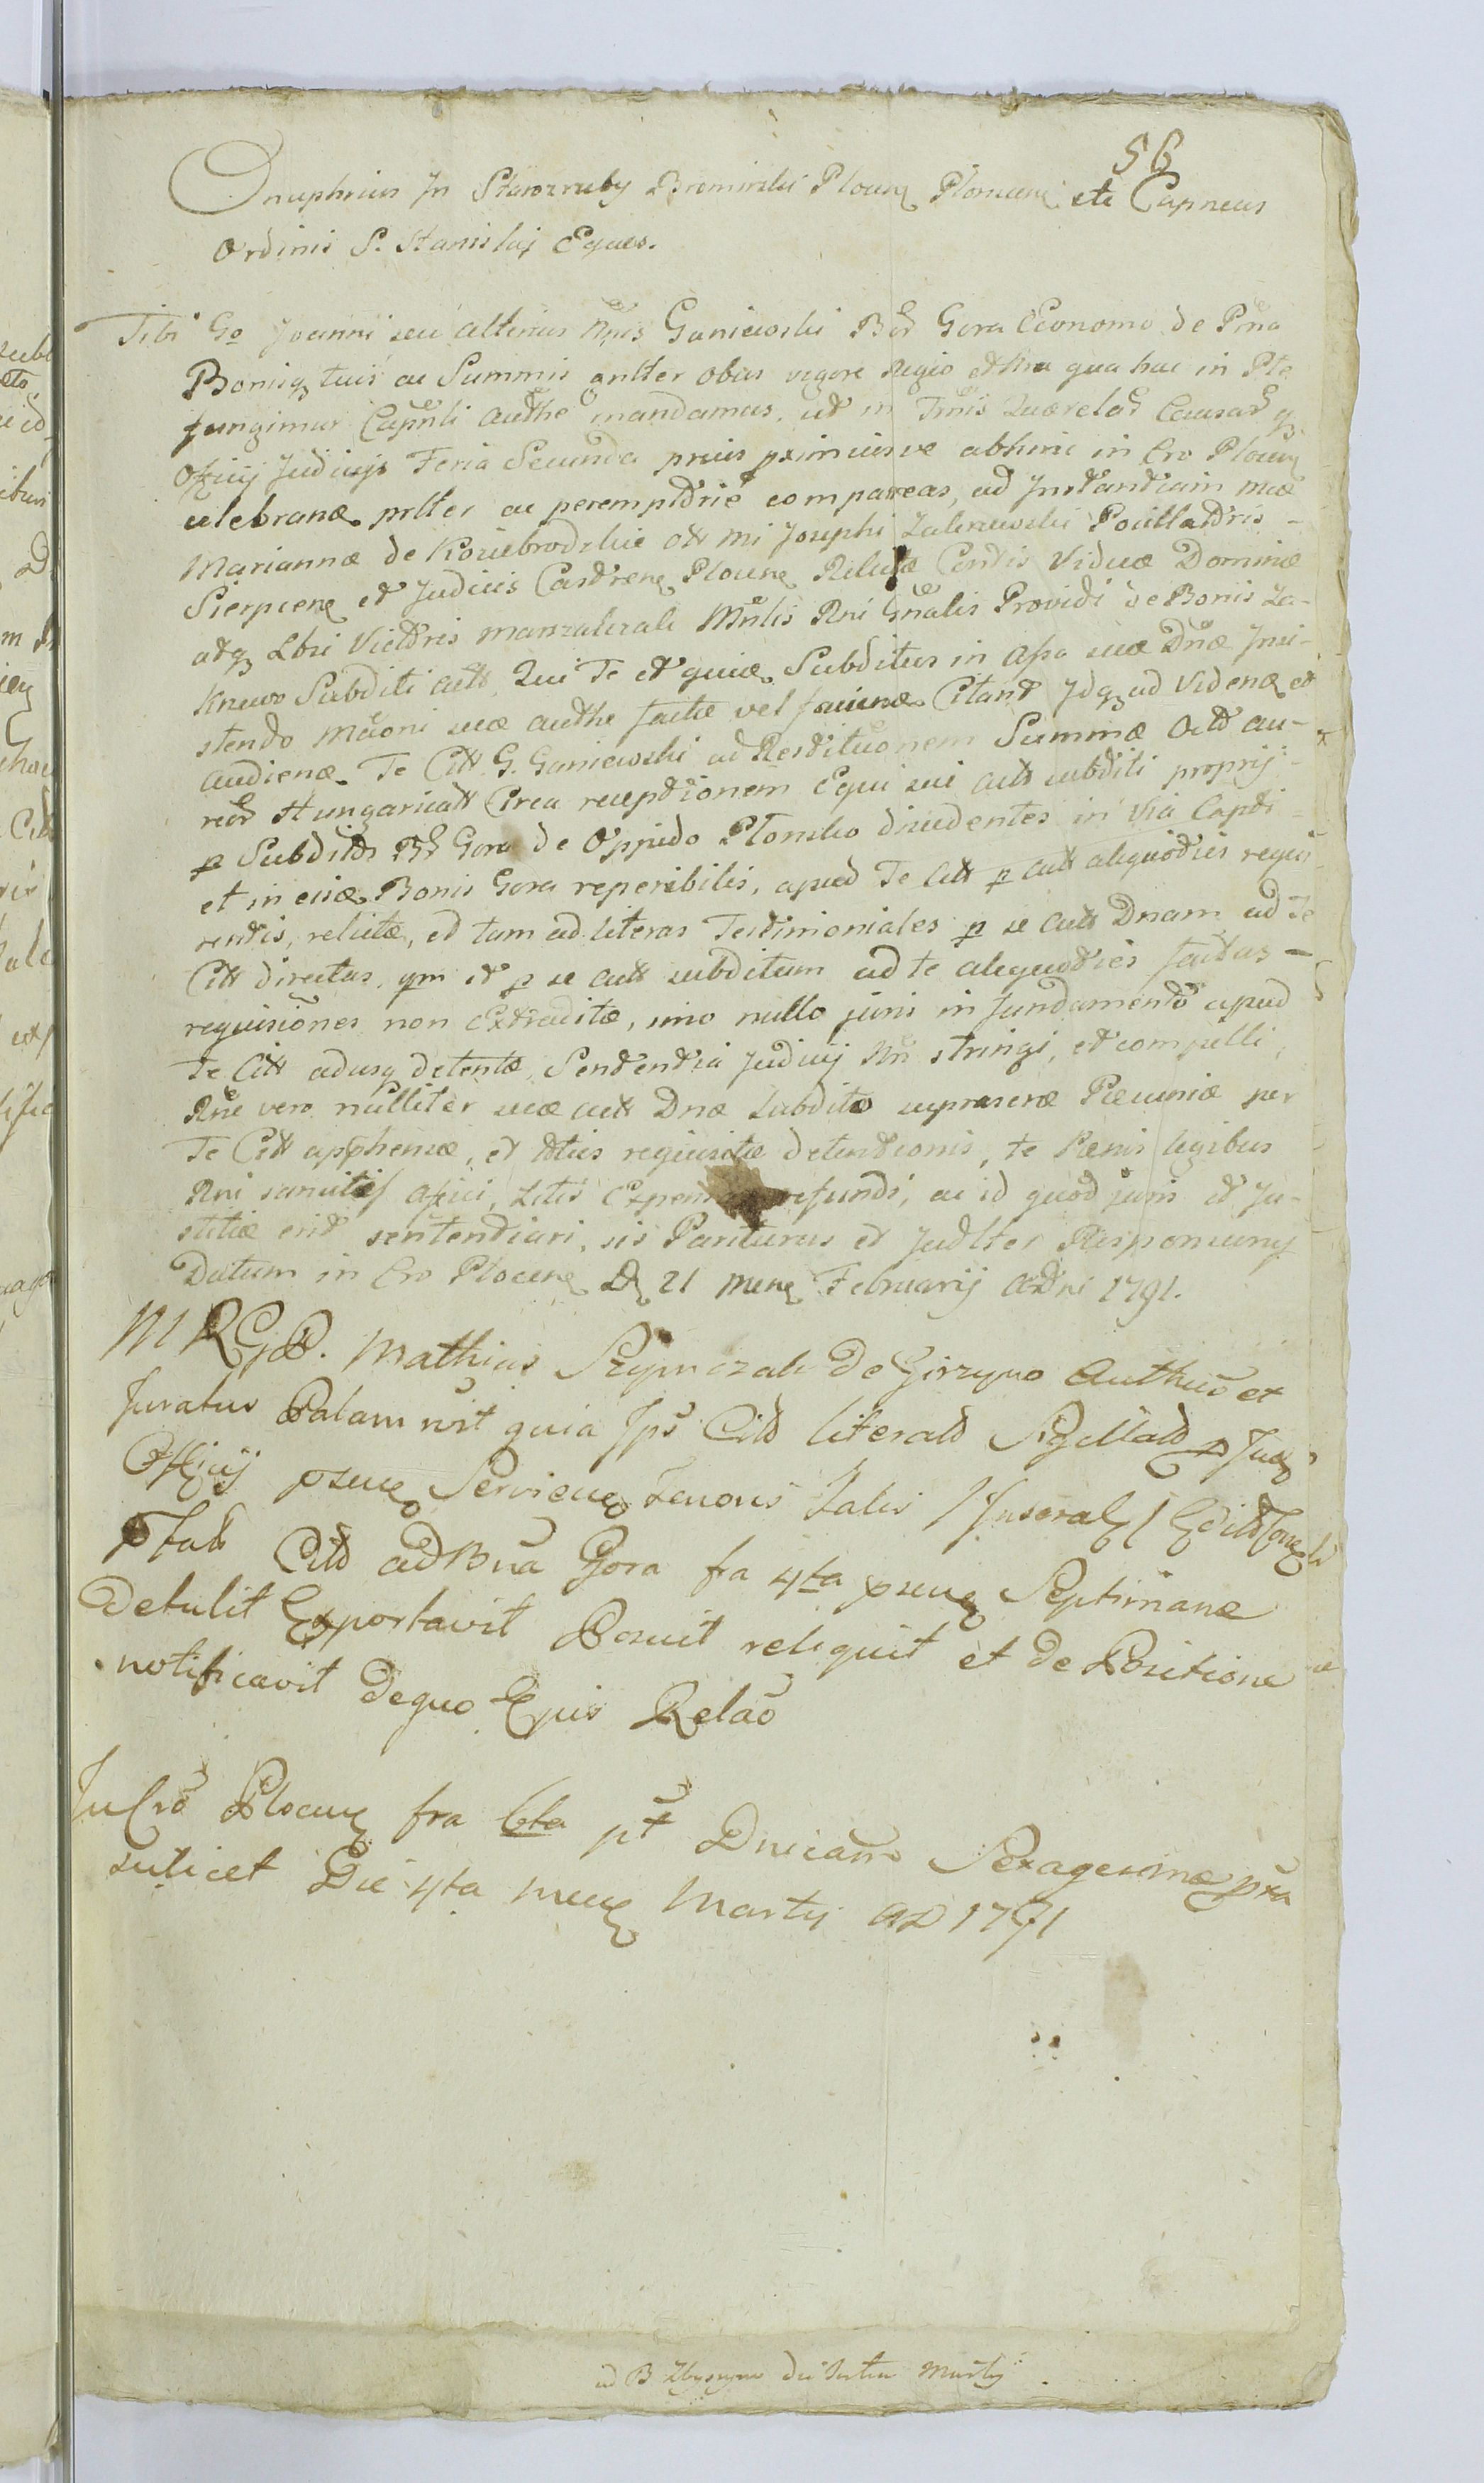 56
Onuphrius In Starozreby Bromirski Plocen Plonscen etc Capneus
Ordinis S. Stanislaj Eques.
Tibi Go Joanni seu alterius Nnis Ganiewski Bor Gora Economo de Psna
Bonisq tuis ac Summis gntter obus vigore Regio ettra qua hac in Pte
fungimur Capnli authe mandamus, ut in Trnis Querelar Causar q
Officij Judicijs Feria Secunda prius pximiusve abhinc in Cro Plocen
celebran prtter ac peremptorie compareas, ad Instantiam Mcae
Mariannae de Koziebrodzkie ott mi Josephi Zalewski Pocillatoris -
Sierpcen et Judicis Castren Plocen Relictae Cordis Viduae Dominae
atq Lbri Victoris Marszalczak Mnlis Rni Gnalis Providi de Bonis Za-
Krzewo Subditi actt, Qui Te et quia Subditus in Assa suae Dnae Insi-
stendo Maoni suae authe factae vel faciend Citant Idq ad Vidend et
audiend Te Citt G. Ganiewski ad Restitutionem Summae Octo au-
reor Hungaricatt Circa receptionem Equi sui actt subditi proprij
p Subditos Bor Gora de Oppido Plonsko discedentes in Via Capti
et in eisd Bonis Gora reperibilis, apud Te Citt p actt aliquoties requi-
rentis, relictae, et tam ad literas Testimoniales p se actt Dnam ad Te
Citt directas, qm et p se actt subditum ad te aliquoties factas -
requisiones non extraditae, imo nullo juris in fundamento apud
Te Citt adusq detentae, Sententia Judicij Nri stringi, et compelli,
Rne vero nulliter suae actt Dnae Subdito suprascrae Pecuniae per
Te Citt apphensae, et totius requisitae detentionis, te Paenis legibus
Rni sancitis affici, Litis Expensas refundi, ac id quod juris et Ju-
stitiae erit sententiari, sis Pariturus et Judtter Responsurus
Datum in Cro Plocen D 21 Mens Februarij A Dni 1791.
M R G P. Mathias Szymczak de Girzyno Authus et
Juratus Palam rvit quia Ips Citt literatt Sigillatt p Jud
Officij psens Serviens Tenoris Talis / Inseratr /
Citt ad Bna Gora fra 4ta psens Septimanae
Detulit Exportavit Posuit reliquit et de Positione
notificavit Dequo Ejus Relao
In Cro Plocen fra 6ta pt Dnicam Sexagesimae pxa
scilicet Die 4ta mens Martij AD 1791
ad B Zbyszyno die Martij